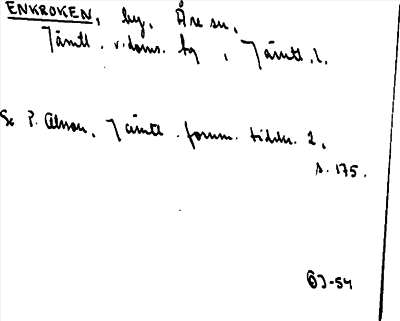 ENKROKEN, by, Åre sn,
Jämtl. v. doms. fg, Jämtl. l.
Se P. Olsson, Jämtl. fornm. tidskr. 2,
s. 175.
-54